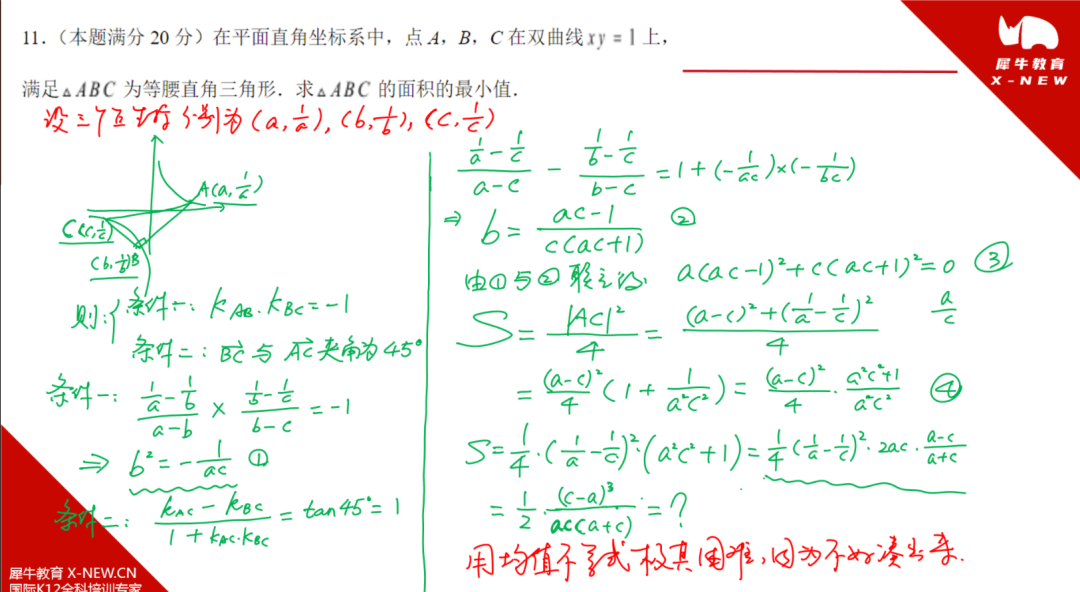 11.（本题满分 20 分）在平面直角坐标系中，点 A，B，C 在双曲线 xy = 1 上，
满足△ABC 为等腰直角三角形．求△ABC 的面积的最小值．
犀牛教育
X-NEW
设三个点坐标分别为 (a, 1/a), (b, 1/b), (c, 1/c)
A(a, 1/a)
C(c, 1/c)
(b, 1/b)B
则:{条件一: k_AB · k_BC = -1
条件二: BC 与 AC 夹角为45°
条件一: (1/a - 1/b)/(a-b) × (1/b - 1/c)/(b-c) = -1
⇒ b² = -1/(ac) ①
条件二: (k_AC - k_BC)/(1 + k_AC·k_BC) = tan45° = 1
(1/a - 1/c)/(a-c) - (1/b - 1/c)/(b-c) = 1 + (-1/(ac))×(-1/(bc))
⇒ b = (ac-1)/(c(ac+1)) ②
由①与②联立得: a(ac-1)² + c(ac+1)² = 0 ③
S = |AC|²/4 = ((a-c)² + (1/a - 1/c)²)/4
a/c
= (a-c)²/4 (1 + 1/(a²c²)) = (a-c)²/4 · (a²c²+1)/(a²c²) ④
S = 1/4 · (1/a - 1/c)² · (a²c²+1) = 1/4 (1/a - 1/c)² · 2ac · (a-c)/(a+c)
= 1/2 · (c-a)³/(ac(a+c)) = ?
用均值不等式极其困难，因为不好凑出来.
犀牛教育 X-NEW.CN
国际K12全科培训专家